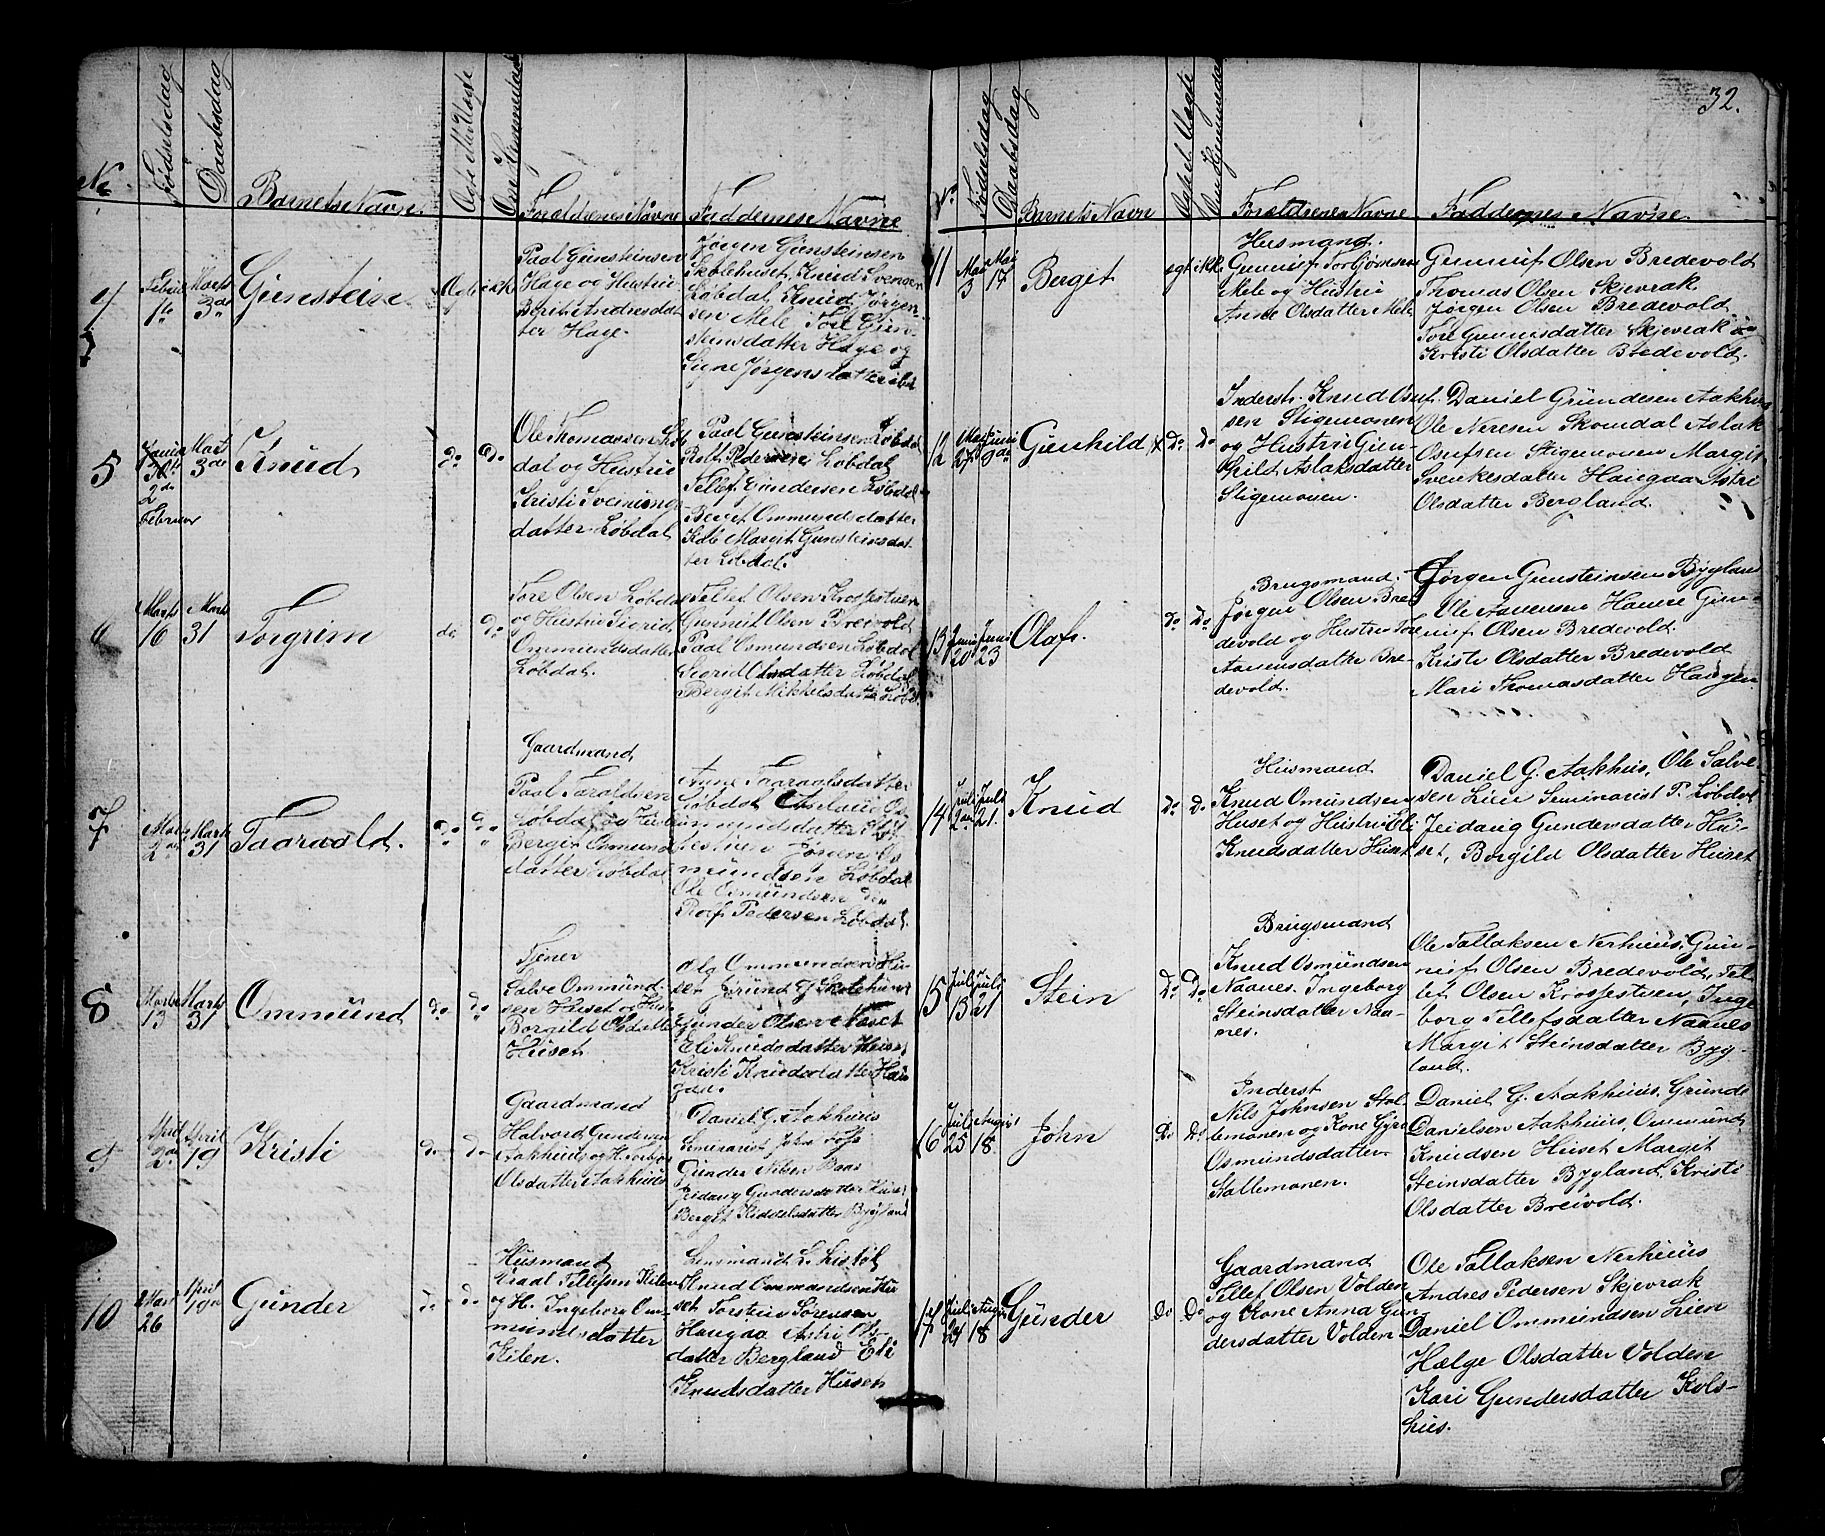 32.
No
Fødselsdag
Daabsdag
Barnets Navn
Om Hjemmedaab
Forældrenes Navne
Faddernes Navne
4
Marts
3die
Gunstein
Ægte
ikke
Paal Gunsteinsen
Hage og Hustrue
Berit Andresdat
ter Hage.
Jørgen Gunsteinsen
Skolehuset, Knud Svensen
Løbdal, Knud Jørgen
sen Mele Tore Gun
steinsdatter Hage og
Signe Jørgensdatter ibid
5
2den
Februar
Marts
3die
Knud
do
do
Ole Thomassen Løb
dal og Hustrue
Kristi
datter Løbdal
Paal Gunsteinsen Løbdal
Rolf Pedersen Løbdal
Tellef Gundersen Løbdal
Bergit Ommundsdatter
Margit Gunsteinsdat
ter Løbdal.
6
Marts
16
Marts
31
Torgrim
do
do
Tore Olsen Løbdal
og Hustrue Sigrid
Ommundsdatter
Løbdal.
Tellef Olsen Krosfestveen
Gunuif Olsen Breivold
Paal Osmundsen Løbdal
Sigrid datter Løbdal
Bergit Mikkelsdatter Løbd.
7
Marts
2den
Marts
31
Taarvold.
do
do
Gaardmand
Paal Taraldsen
Løbdal og Hustrue
Berget Osmunds
datter Løbdal
Anne Taaraalsdatter
Løbdal Aslaug Os
mundsdatter
Jørgen Os
mundsen Løbdal
Ole Osmundsen
Rolf Pedersen Løbdal
8
Marts
13
Marts
31
Ommund
do
do
Tjener
Salve Ommund
sen Huset og Hust
Borgild Olsdatter
Huset.
Ommundsen Hu
set Jørund G Skolehuset
Gunder Olsen Huset
Eli Knudsdatter Huset
Kristi Knudsdatter Hau
gaa.
9
April
2den
April
19
Kristi
do
do
Gaardmand
Halvord Gundersen
Aakhus og H. Torbjør
Olsdatter Aakhus
Daniel G. Aakhus
Seminarist John
Gunder Nilsen Baas
Jeidaug Gundersdatter Huset
Bergit Kiddelsdatter Bygland
10
Mar
26
April
19de
Gunder
do
do
Husmand
Graal Tellefsen Kilen
og H. Ingeborg Om
mundsdatter
Kilen.
Lensmand L. Listøl
Knud Ommundsen Hu
set Torstein Sørensen
Haugaa Astri Ols
datter Bergland Eli
Knudsdatter Husen
No
Fødselsdag
Daabsdag
Barnets Navn
Om Hjemmedaab
Forældrenes Navne
Faddernes Navne
11
Mai
3
Mai
17
Bergit
egt
ikke
Husmand.
Gunnuf Torbjørnsen
Mele og Hustrue
Anne Olsdatter Mele
Gunnuf Olsen Bredevold
Thomas Olsen Skjevrak
Jørgen Olsen Bredevold
Tore Gunnufsdatter Skjevrak og
Kristi Olsdatter Bredevold.
12
Mai
27
Juni
2den
Gunhild
Do
Do
Inderst. Knud Osuf
sen Stigemonen
og Hustru Gun
hild Aslaksdatter
Stigemonen.
Daniel Gundersen Aakhus
Ole Neresen Skomdal Aslak
Osufsen Stigemonen Margit
Svenkesdatter Haugaa Astri
Olsdatter Bergland.
13
Juni
20
Juni
23
Olaf.
do
Do
Brugsmand.
Jørgen Olsen Bre
devold og Hustru Tore
Aanensdatter Bre
devold.
Jørgen Gunsteinsen Bygland
Ole Aanensen Hauge Gun
nuf Olsen Bredevold.
Kristi Olsdatter Bredevold
Mari Thomasdatter Haugen
14
Juli
2den
Juli
21.
Knud
do
do
Husmand
Knud Omundsen
Huset og Hustru Eli
Knudsdatter Huset
Daniel G. Aakhus, Ole Salve
sen Lien Seminarist P. Løbdal
Jeidaug Gundersdatter Hu-
set, Borgild Olsdatter Huset
15
Juli
13
Juli
21
Stein
Do
Do
Brugsmand
Knud Osmundsen
Naanes. Ingeborg
Steinsdatter Naa
nes.
Ole Tallaksen Nerhuus, Gun-
nuf Olsen Bredevold, Tel
lef Olsen Krosfestveen, Inge
borg Tellefsdatter Naanes
Margit Steinsdatter Byg-
land.
16
Juli
25
August
18.
John
Do
Do
Inderst
Nils Johnsen Stal
lemonen og Kone Gyro
Osmundsdatter
Stallemonen.
Daniel G. Aakhuus, Gunde
Danielsen Aakhuus, Ommund
Knudsen Huset Margit
Steinsdatter Bygland, Kristi
Olsdatter Breivold.
17
Juli
24
August
18
Gunder
Do
Do
Gaardmand
Tellef Olsen Volden
og Kone Anna Gun
dersdatter Volden
Ole Tallaksen Nerhuus
Andres Pedersen Skjevrak
Daniel Ommundsen Lien
Hælge Olsdatter Volden
Kari Gundersdatter Kols-
hus.